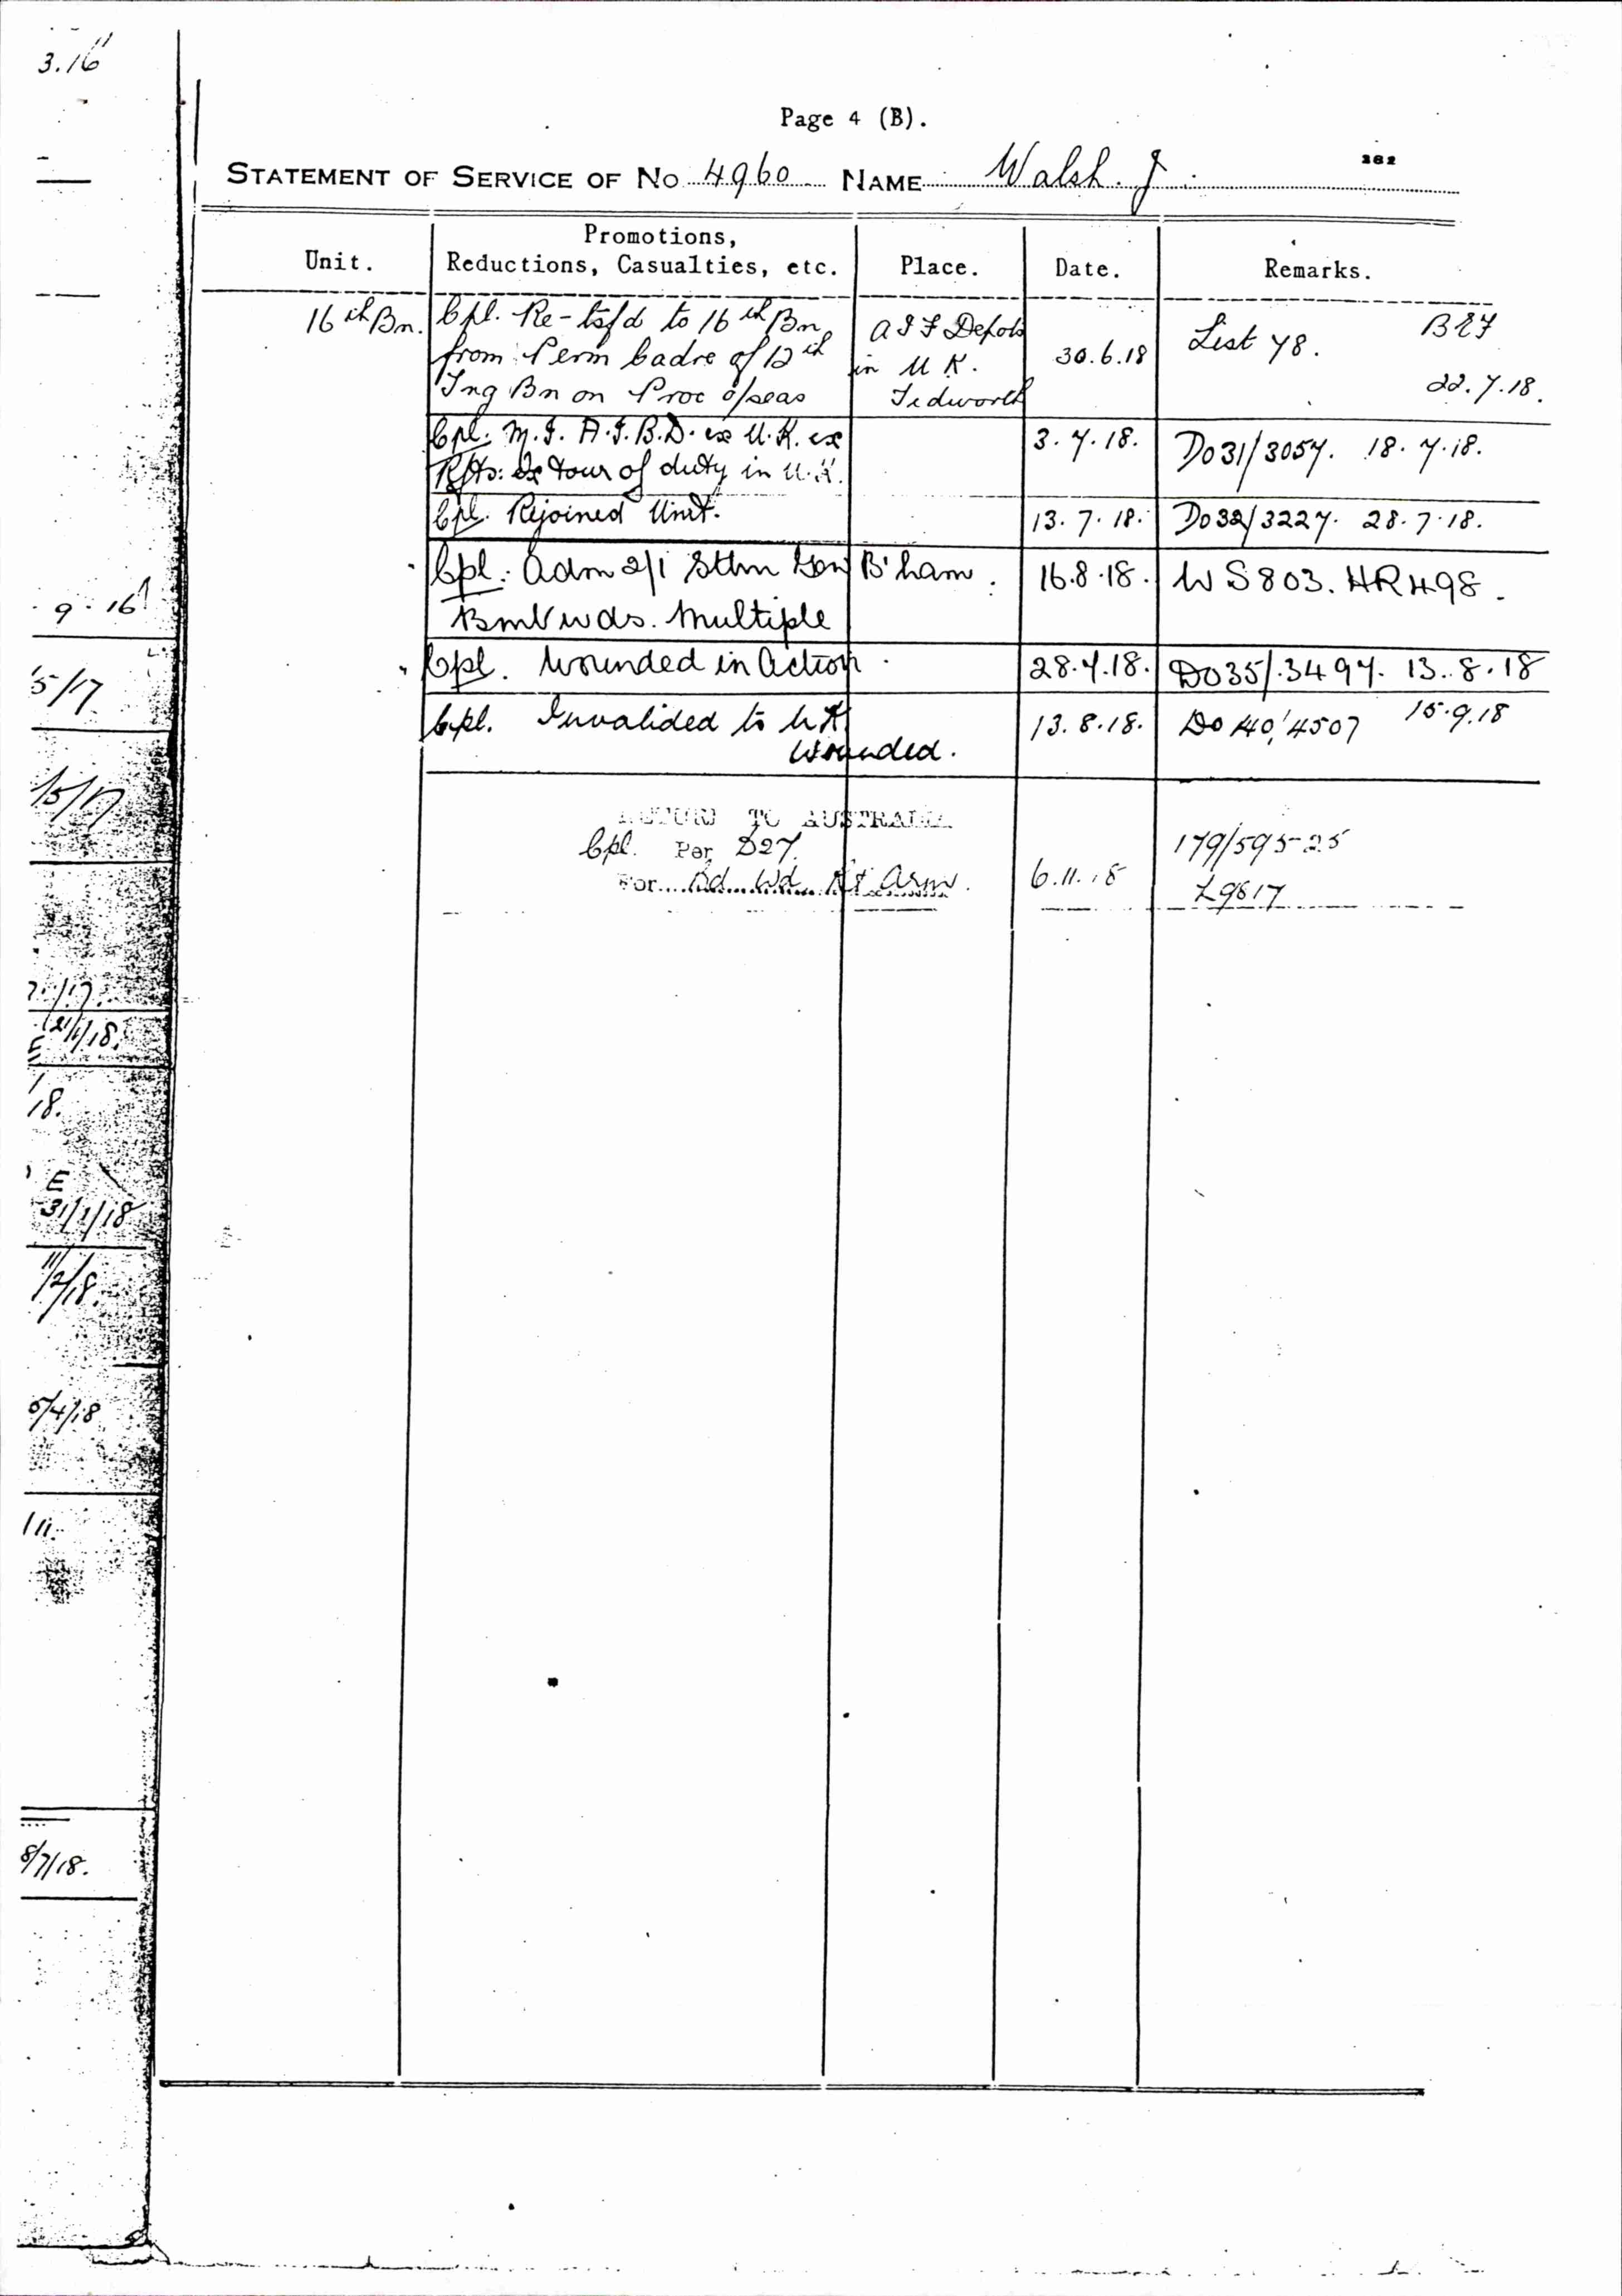 3.16
Page 4 (B).
282
STATEMENT OF SERVICE OF No 4960 NAME Walsh. J.
Unit. Promotions, Reductions, Casualties, etc. Place. Date. Remarks.
16th Bn. Cpl. Re-tsfd to 16th Bn A I F Depots List 78. BEF
from Perm Cadre of 12th in U K. 30.6.18
Tng Bn on Proc o/seas Tidworth 22.7.18.
Cpl. M.I. A.I.B.D. ex U.K. ex 3.7.18. Do31/3057. 18.7.18.
Rfts: ex tour of duty in U.K.
Cpl. Rejoined Unit. 13.7.18. Do32/3227. 28.7.18.
Cpl. Adm 2/1 Sthn Gen B'ham. 16.8.18. W S 803. HR498.
Bmb wds. Multiple
Cpl. Wounded in Action. 28.7.18. Do35/3497. 13.8.18
Cpl. Invalided to UK 13.8.18. Do 40/4507 15.9.18
Wounded.
RETURN TO AUSTRALIA
Cpl. Per D27. 179/595-25
For Gd. Wd. Rt Arm. 6.11.18
9.16
5/17
15/17
18.
E
31/1/18
11/2/18.
5/4/18
8/7/18.